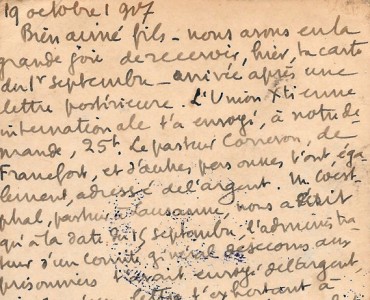 19 octobre 1907
Bien aimé fils - nous avons eu la
grande joie de recevoir, hier, ta carte
du 1er septembre - arrivée après une
lettre postérieure. L'Union Xtienne
internationale t'a envoyé, à notre de-
mande, 25f. Le pasteur Correvon, de
Francfort, et d'autres personnes t'ont, éga-
lement, adressé de l'argent. M.
phal, pasteur à Lausanne, nous a écrit
qu'à la date du 15 septembre, l'administra-
teur d'un comité général de secours aux
prisonniers t'avait envoyé de l'argent,
lettre t'exhortant à